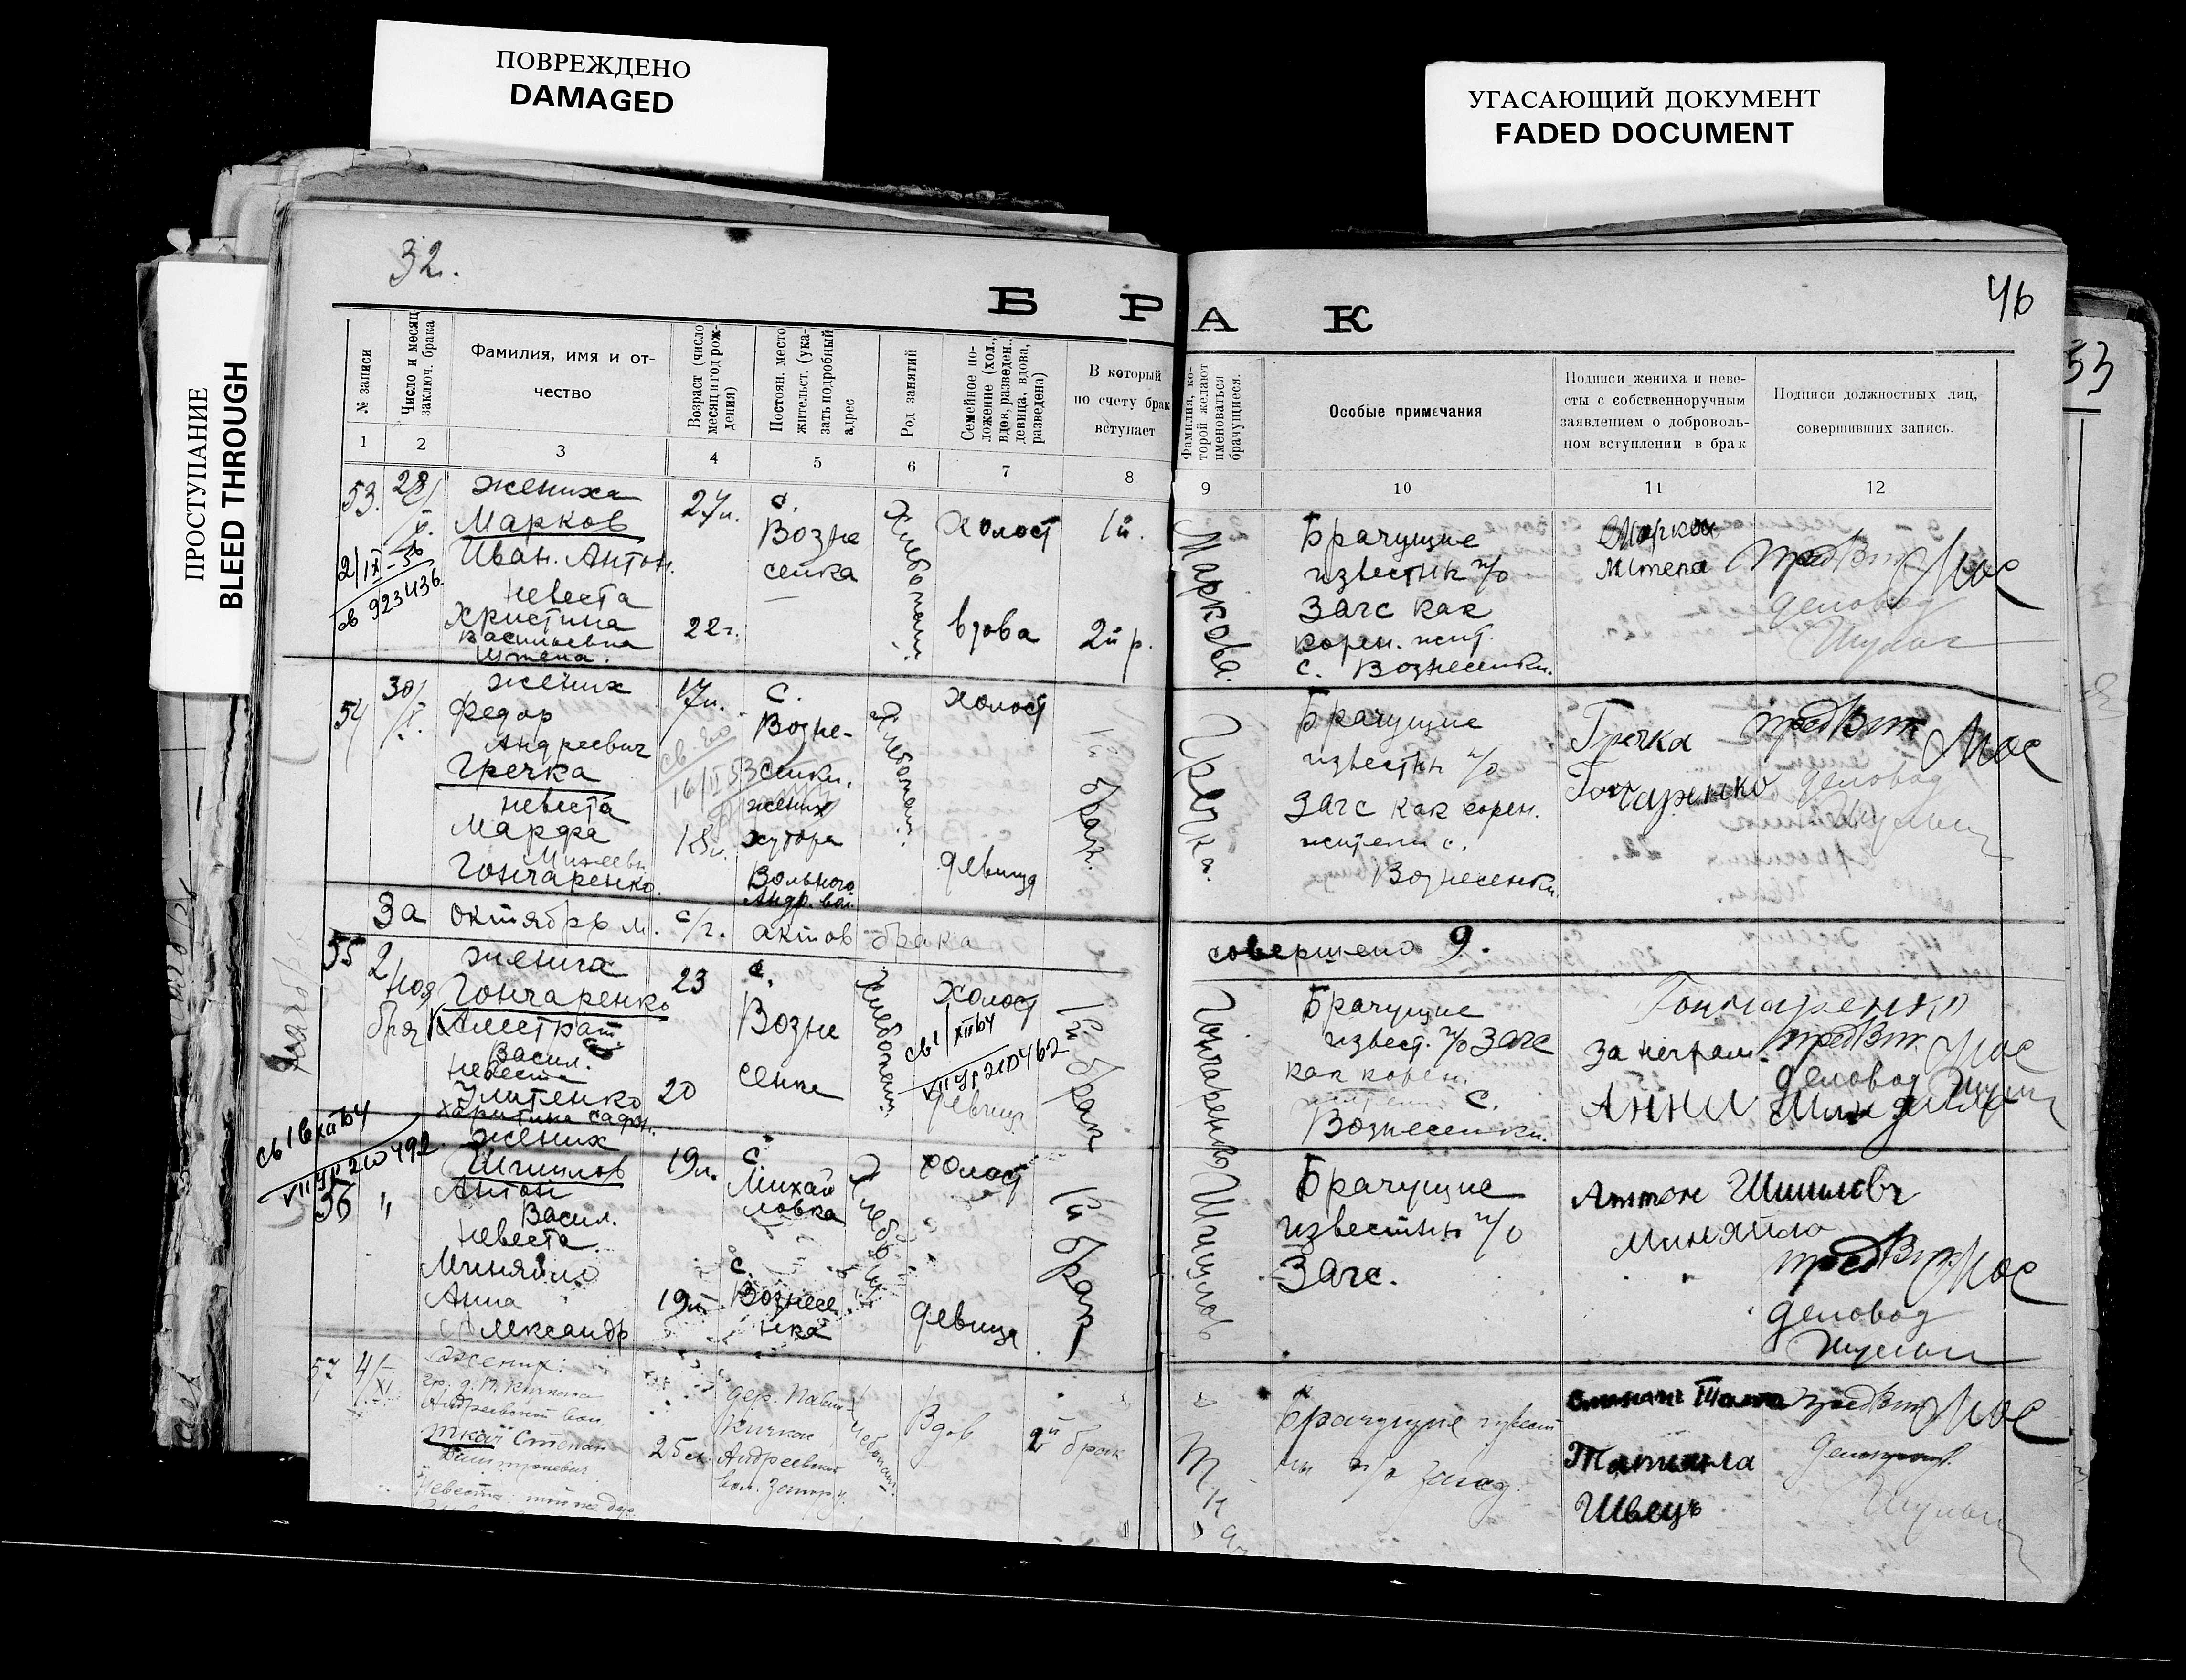 ПОВРЕЖДЕНО
DAMAGED
УГАСАЮЩИЙ ДОКУМЕНТ
FADED DOCUMENT
ПРОСТУПАНИЕ
BLEED THROUGH
32.
46
53
БРАК
№ записи
Число и месяц
заключ. брака
Фамилия, имя и от-
чество
Возраст (число
месяц и год рож-
дения)
Постоян. место
жительст. (ука-
зать подробный
адрес
Род занятий
Семейное по-
ложение (хол.,
вдов, разведен.,
девица, вдова,
разведена)
В который
по счету брак
вступает
Фамилия, ко-
торой желают
именоваться
брачущиеся.
Особые примечания
Подписи жениха и неве-
сты с собственноручным
заявлением о доброволь-
ном вступлении в брак
Подписи должностных лиц,
совершивших запись.
1 2 3 4 5 6 7 8 9 10 11 12
53.
28/X.
2/IX-56
св 923436
жениха
Марков
Иван. Антон.
невеста
Христина
Васильевна
Штепа.
27л.
22г.
с.
Возне
сенка
Хлебопаш.
Холост
вдова
1й.
2й р.
Маркова.
Брачущие
известны п/о
Загс как
корен. жит.
с. Вознесенки.
Марков
Штепа
предВик
деловод
54
30/X.
жених
Федор
Андреевич
Гречка
невеста
Марфа
Гончаренко.
17л.
18л.
с.
Возне-
сенки.
жених
хутора
Вольного
Андр. вол.
Хлебопаш.
холост
девица
1й брак.
Гречка.
Брачущие
известны п/о
Загс как корен.
жители с.
Вознесенки.
Гречка
Гончаренко
деловод
За октябрь м. с/г. актов брака
совершено 9.
55
2/ноя
бря
жениха
Гончаренко
Калистрат
Васил.
невеста
Улитенко
Харитина Сафон.
23
20
с.
Возне
сенке
Хлебопаш.
Холост
св 1/XII 64
VII УР 210462
девица
1й брак
Гончаренко
Брачущие
извест. п/о Загс
как корен.
с.
Вознесенки.
Гончаренко
за неграм.
деловод
св 16 XII 64
VII УР 210492
56
"
жених
Шишлов
Антон
Васил.
невеста.
Миняйло
Анна
Александр
19л.
19л.
с.
Михай
ловка
с.
Вознесе
нка
холост
девица
1й брак
Шишлов
Брачущие
известны п/о
Загс.
Антон Шишловъ
Миняйло
деловод
57
4/XI
Жених:
Андреевской вол.
Ткач Степан
Невеста: той же дер.
25л.
дер. Павло-
Кичкас
Андреевской
вол. Запор. у.
Вдов
2й брак
Ткач
Брачущие
Татьяна
Швець